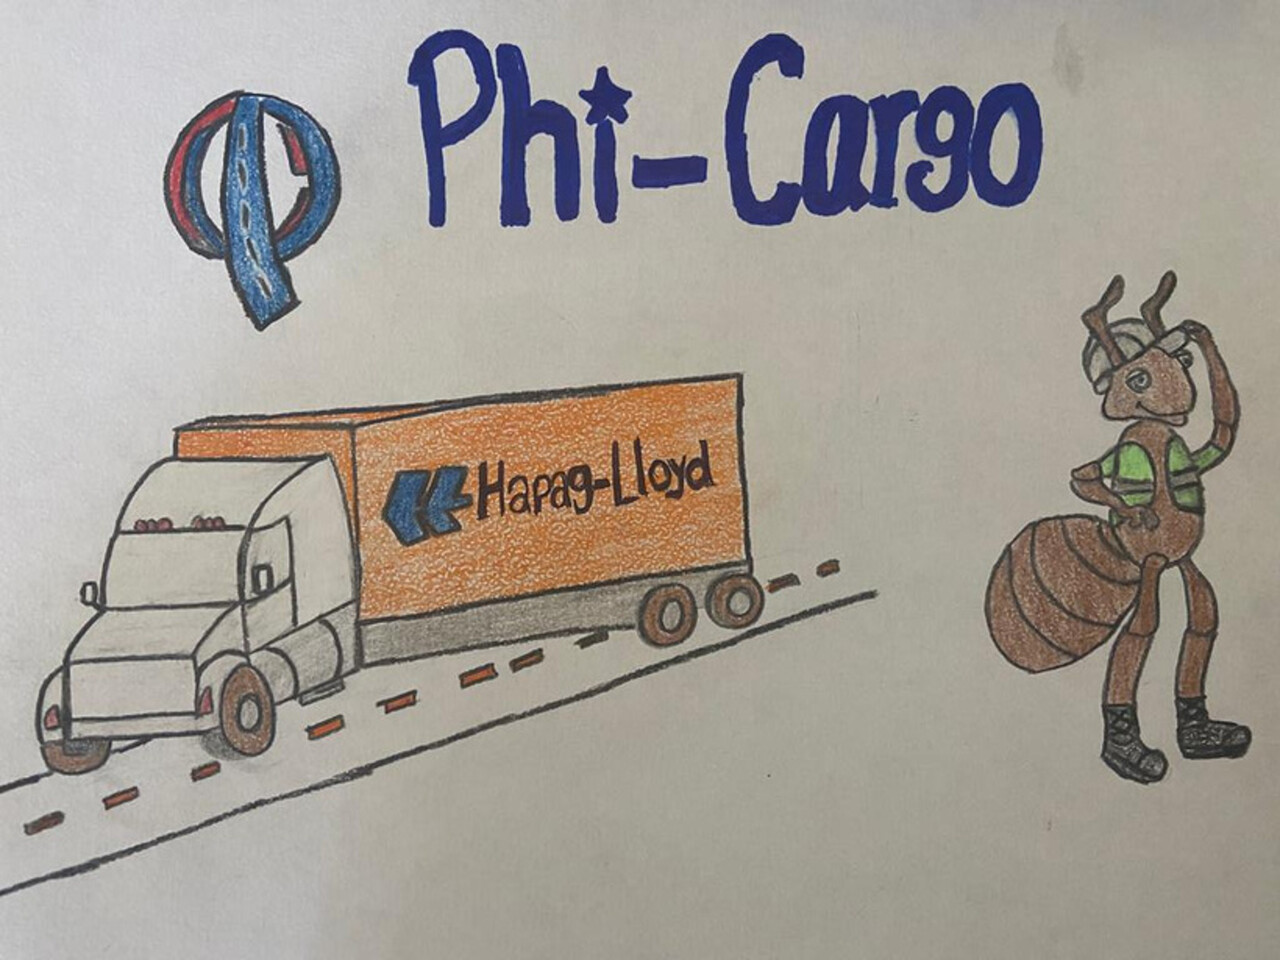 Phi-Cargo
Hapag-Lloyd